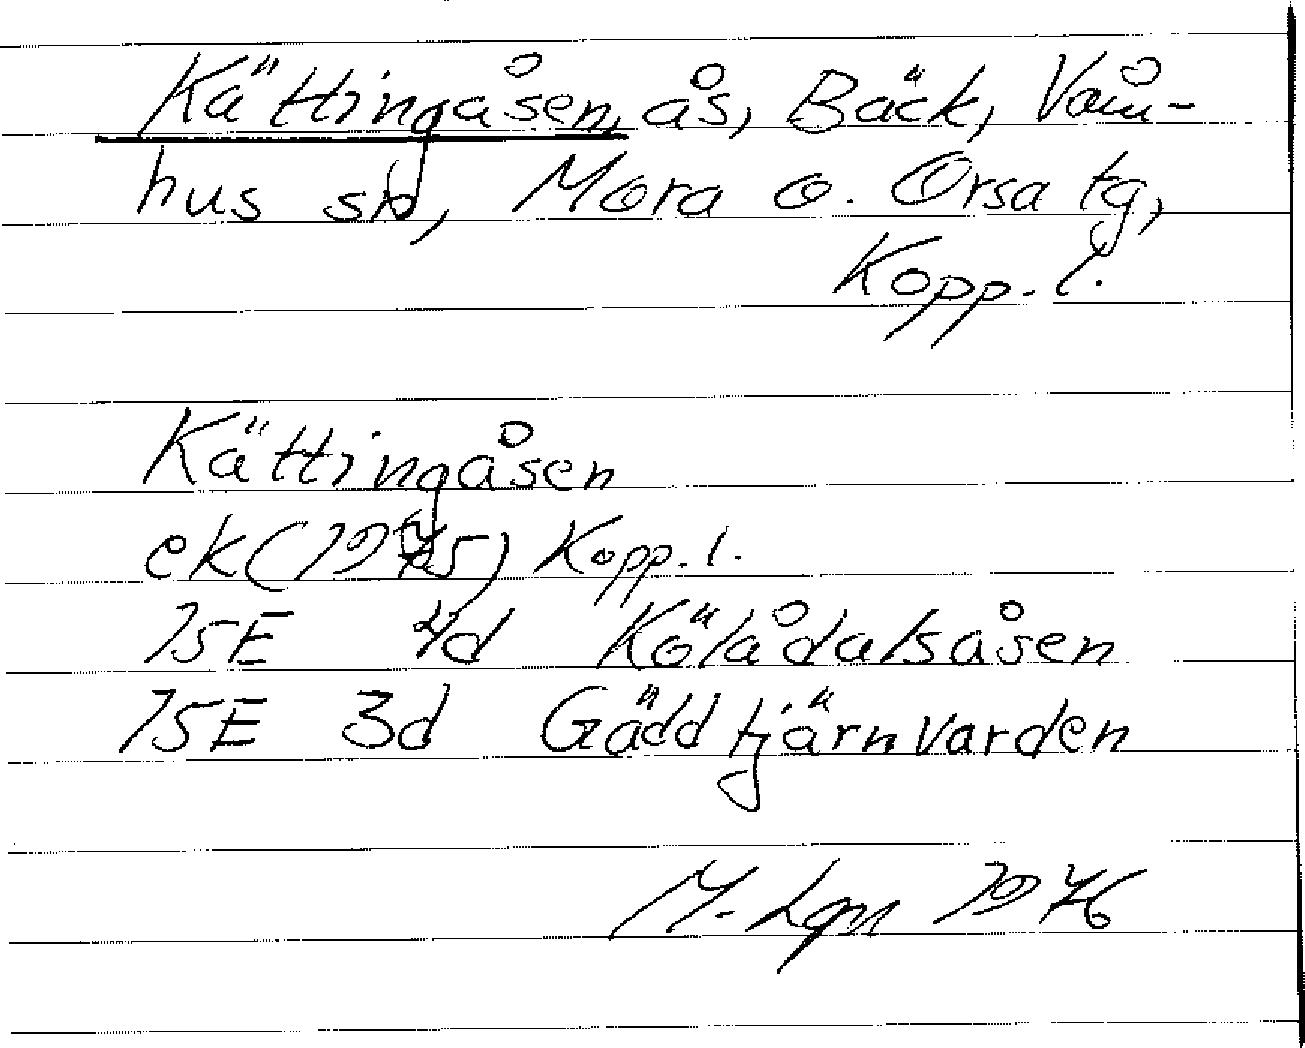 Kättingåsen, ås, Bäck, Våm-
hus sn, Mora o. Orsa tg,
Kopp. l.
Kättingåsen
ek (1975) Kopp. l.
15E 4d Kölådalsåsen
15E 3d Gäddtjärnvarden
M. Lgn 1976